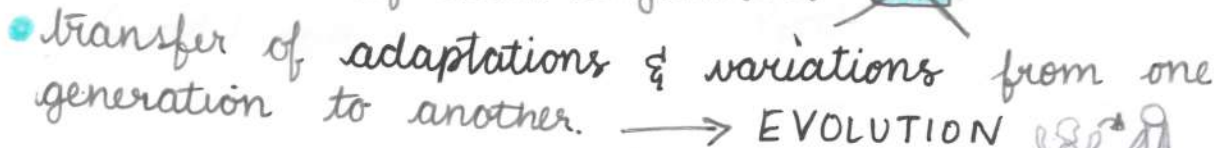 • transfer of adaptations & variations from one
generation to another. ⟶ EVOLUTION